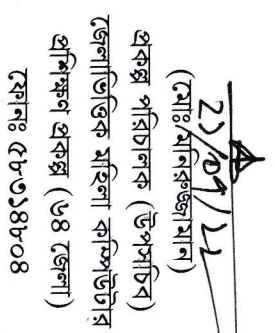 (মোঃ মনিরুজ্জামান)
প্রকল্প পরিচালক (উপসচিব)
জেলাভিত্তিক মহিলা কম্পিউটার
প্রশিক্ষন প্রকল্প (৬৪ জেলা)
ফোনঃ ৫৮৩১৪৮০৪